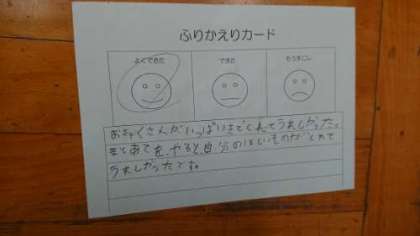 ふりかえりカード
よくできた できた もうすこし
おきゃくさんがいっぱいきてくれてうれしかった。
まとあてをやると自分のほしいものがとれて
うれしかったです。